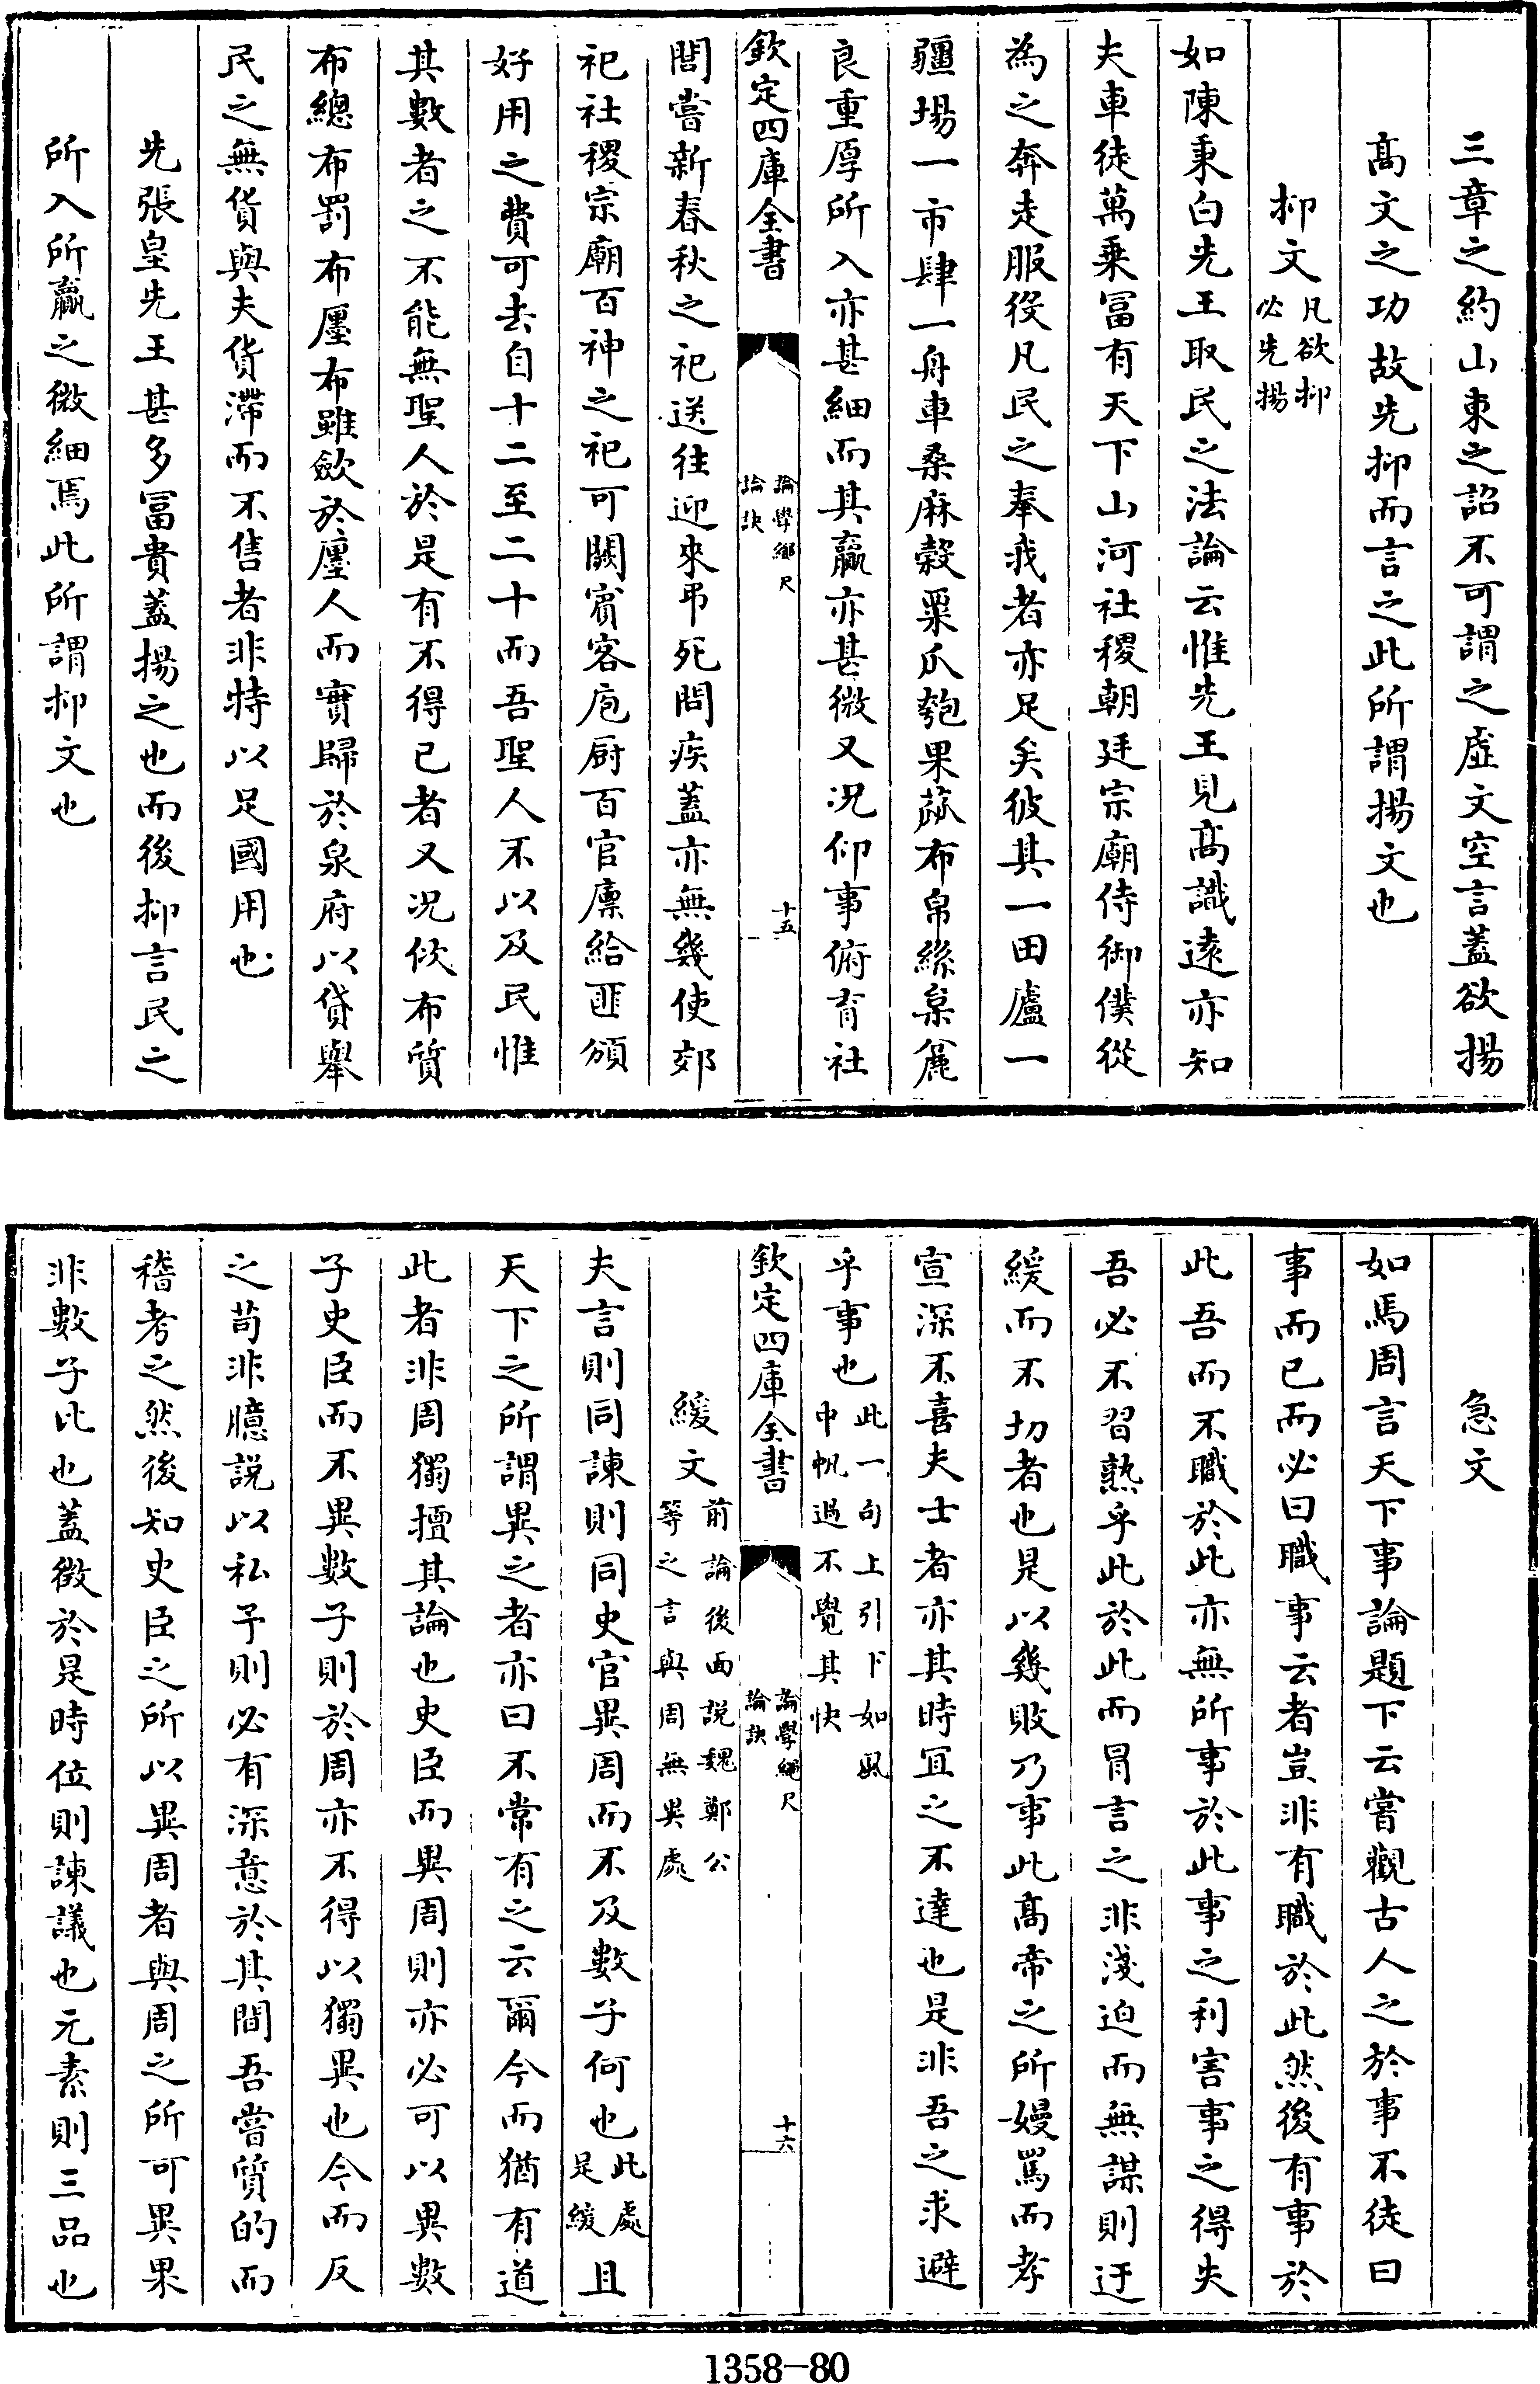 三章之約山東之詔不可謂之虛文空言蓋欲揚
髙文之功故先抑而言之此所謂揚文也
抑文凡欲抑必先揚
如陳秉白先王取民之法論云惟先王見髙識遠亦知
夫車徒萬乗冨有天下山河社稷朝廷宗廟侍御僕從
為之奔走服役凡民之奉我者亦足矣彼其一田廬一
疆埸一市肆一舟車桑麻榖粟瓜匏果蓏布帛絲枲麄
良重厚所入亦甚細而其贏亦甚微又况仰事俯育社
欽定四庫全書
論學繩尺論訣
十五
閭嘗新春秋之祀送往迎來弔死問疾蓋亦無幾使郊
祀社稷宗廟百神之祀可闕賔客庖厨百官廩給匪頒
好用之費可去自十二至二十而吾聖人不以及民惟
其數者之不能無聖人於是有不得已者又况佽布質
布總布罰布廛布雖歛於廛人而實歸於泉府以貸舉
民之無貨與夫貨滯而不售者非特以足國用也
先張皇先王甚多冨貴蓋揚之也而後抑言民之
所入所贏之微細焉此所謂抑文也
急文
如馬周言天下事論題下云嘗觀古人之於事不徒曰
事而已而必曰職事云者豈非有職於此然後有事於
此吾而不職於此亦無所事於此事之利害事之得失
吾必不習熟乎此於此而冐言之非淺迫而無謀則迂
緩而不切者也是以幾敗乃事此髙帝之所嫚罵而孝
宣深不喜夫士者亦其時冝之不達也是非吾之求避
乎事也此一句上引下如風中帆過不覺其快
欽定四庫全書
論學繩尺論訣
十六
緩文前論後面説魏鄭公等之言與周無異處
夫言則同諫則同史官異周而不及數子何也此處是緩且
天下之所謂異之者亦曰不常有之云爾今而猶有道
此者非周獨擅其論也史臣而異周則亦必可以異數
子史臣而不異數子則於周亦不得以獨異也今而反
之苟非臆説以私予則必有深意於其間吾嘗質的而
稽考之然後知史臣之所以異周者與周之所可異果
非數子比也蓋徴於是時位則諫議也元素則三品也
1358-80